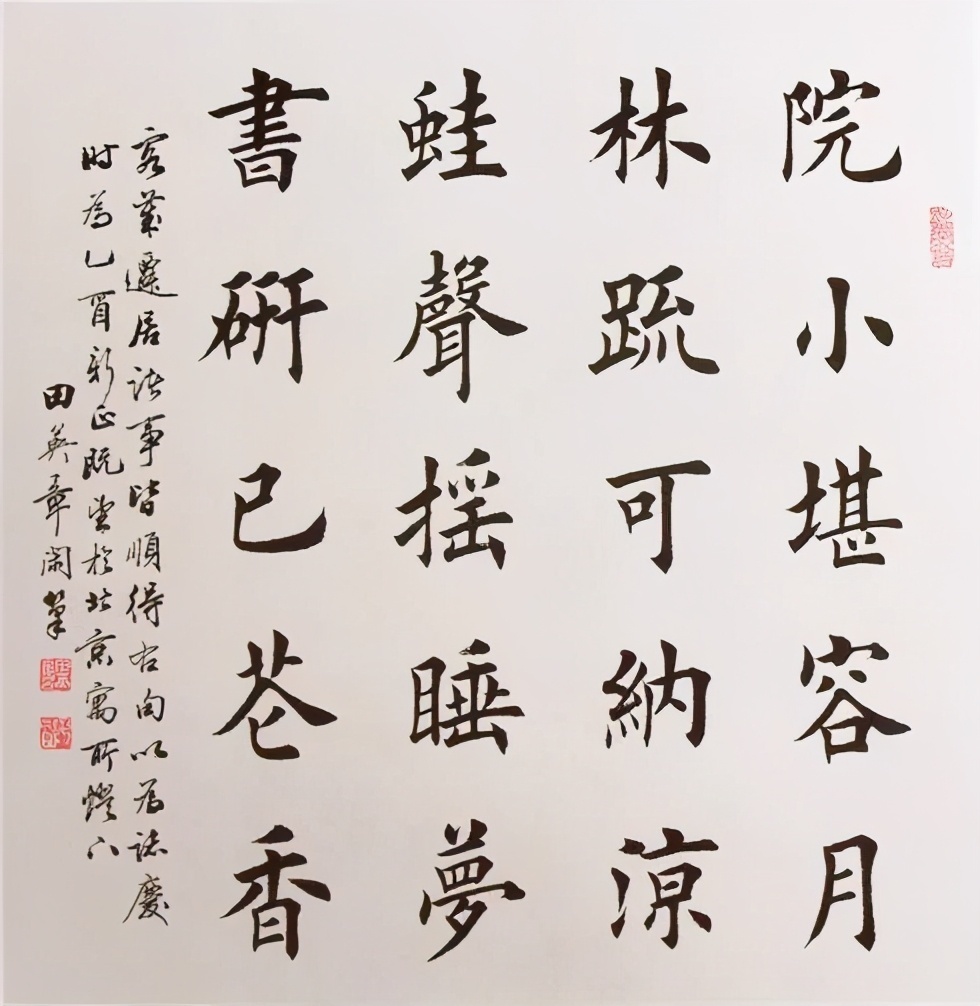 院小堪容月
林䟽可納涼
蛙聲摇睡夢
書硏已芲香
客歲遷居諸事皆順得右句以為誌慶
时為乙酉新正既望於北京寓所燈下
田英章閑筆